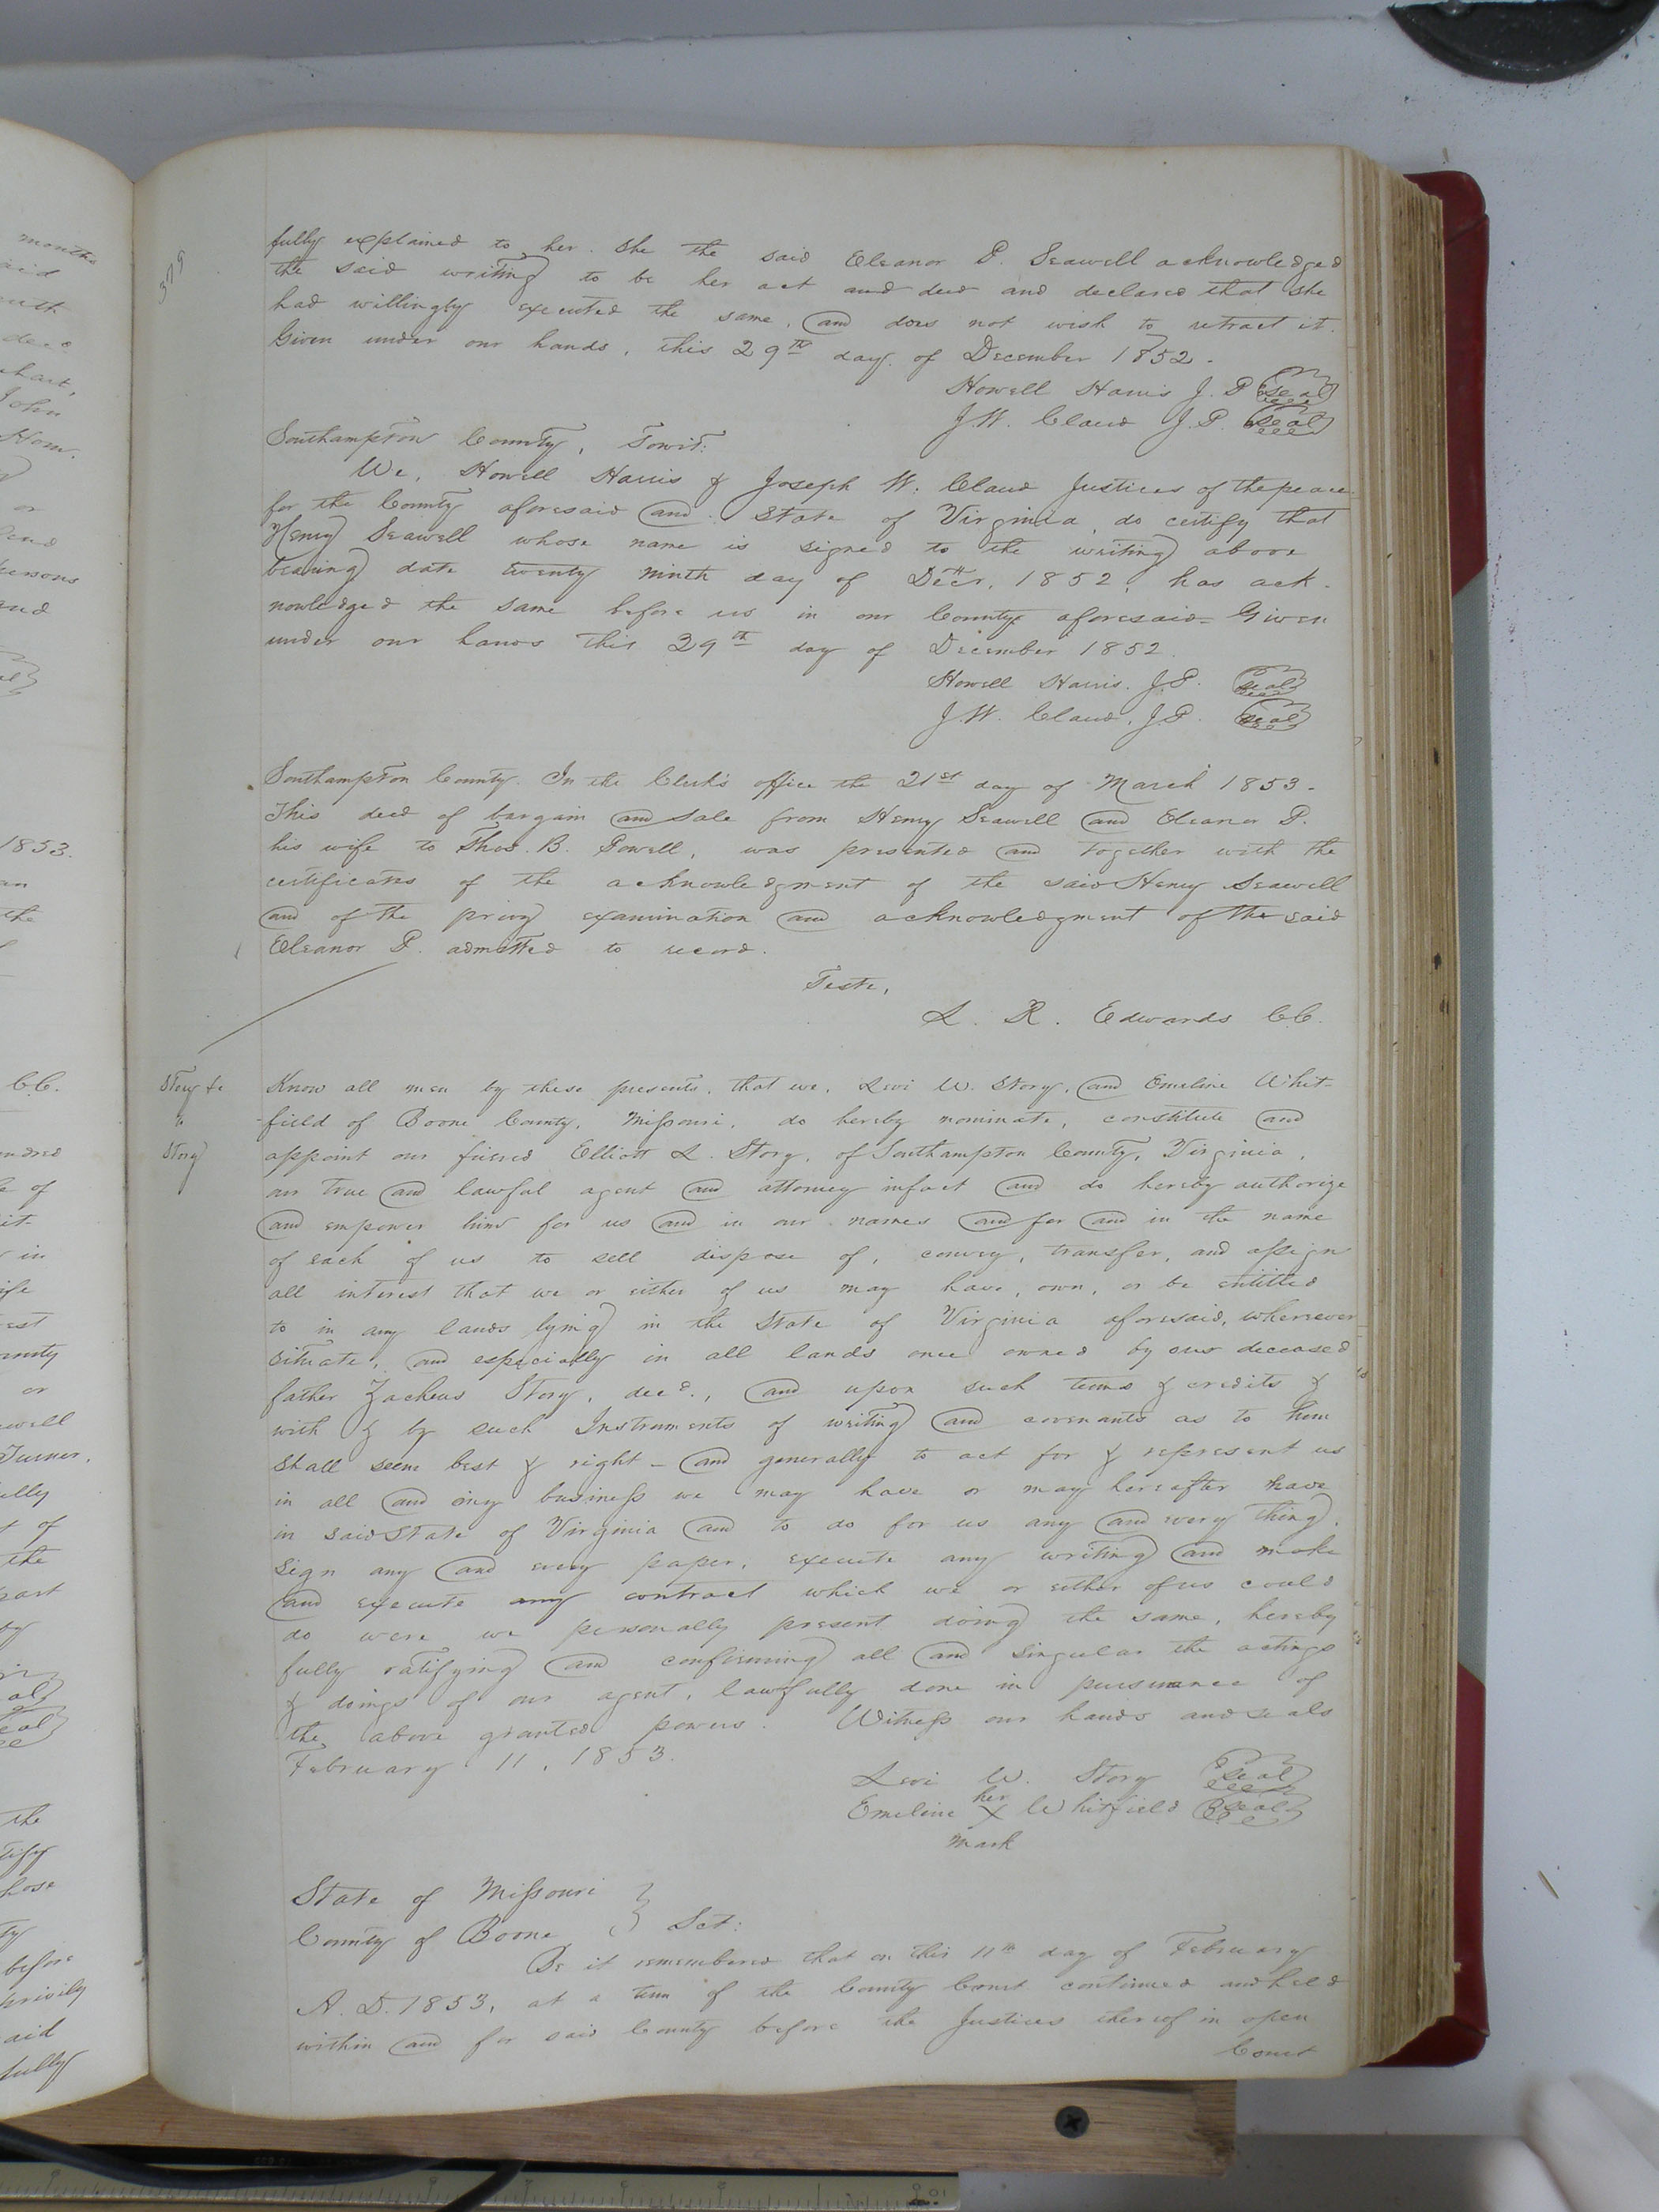 379
fully explained to her. She the said Eleanor P. Seawell acknowledged
the said writing to be her act and deed and declared that she
had willingly executed the same, and does not wish to retract it.
Given under our hands, this 29th day of December 1852.
Howell Harris J. P seal
J. W. Claud J. P. seal
Southampton County, Towit:
We, Howell Harris & Joseph W. Claud Justices of the peace
for the County aforesaid and State of Virginia, do certify that
Henry Seawell whose name is signed to the writing above
bearing date twenty ninth day of Decr. 1852, has ack-
nowledged the same before us in our County aforesaid= Given
under our hands this 29th day of December 1852.
Howell Harris. J. P. seal
J. W. Claud, J. P. seal
Southampton County. In the Clerk's office the 21st day of March 1853.
This deed of bargain and sale from Henry Seawell and Eleanor P.
his wife to Thos. B. Powell, was presented and together with the
certificates of the acknowledgment of the said Henry Seawell
and of the privy examination and acknowledgment of the said
Eleanor P. admitted to record.
Teste,
L. R. Edwards CC.
Story &c
to
Story
Know all men by these presents, that we, Levi W. Story, and Emeline Whit-
field of Boone County, Missouri, do hereby nominate, constitute and
appoint our friend Elliott L. Story, of Southampton County, Virginia,
our true and lawful agent and attorney infact and do hereby authorize
and empower him for us and in our names and for and in the name
of each of us to sell dispose of, convey, transfer, and assign
all interest that we or either of us may have, own, or be entitled
to in any lands lying in the State of Virginia aforesaid, wherever
situate, and especially in all lands once owned by our deceased
father Zacheus Story, decd., and upon such terms & credits &
with & by such Instruments of writing and covenants as to him
shall seem best & right - and generally to act for & represent us
in all and any business we may have or may hereafter have
in said State of Virginia and to do for us any and every thing,
sign any and every paper, execute any writing and make
and execute any contract which we or either of us could
do were we personally present doing the same, hereby
fully ratifying and confirming all and singular the actings
& doings of our agent, lawfully done in pursuance of
the above granted powers. Witness our hands and seals
February 11, 1853.
Levi W. Story seal
her
Emeline X Whitfield seal
mark
State of Missouri }
County of Boone } Sct:
Be it remembered that on this 11th day of February
A. D. 1853, at a term of the County Court continued and held
within and for said County before the Justices thereof in open
Court